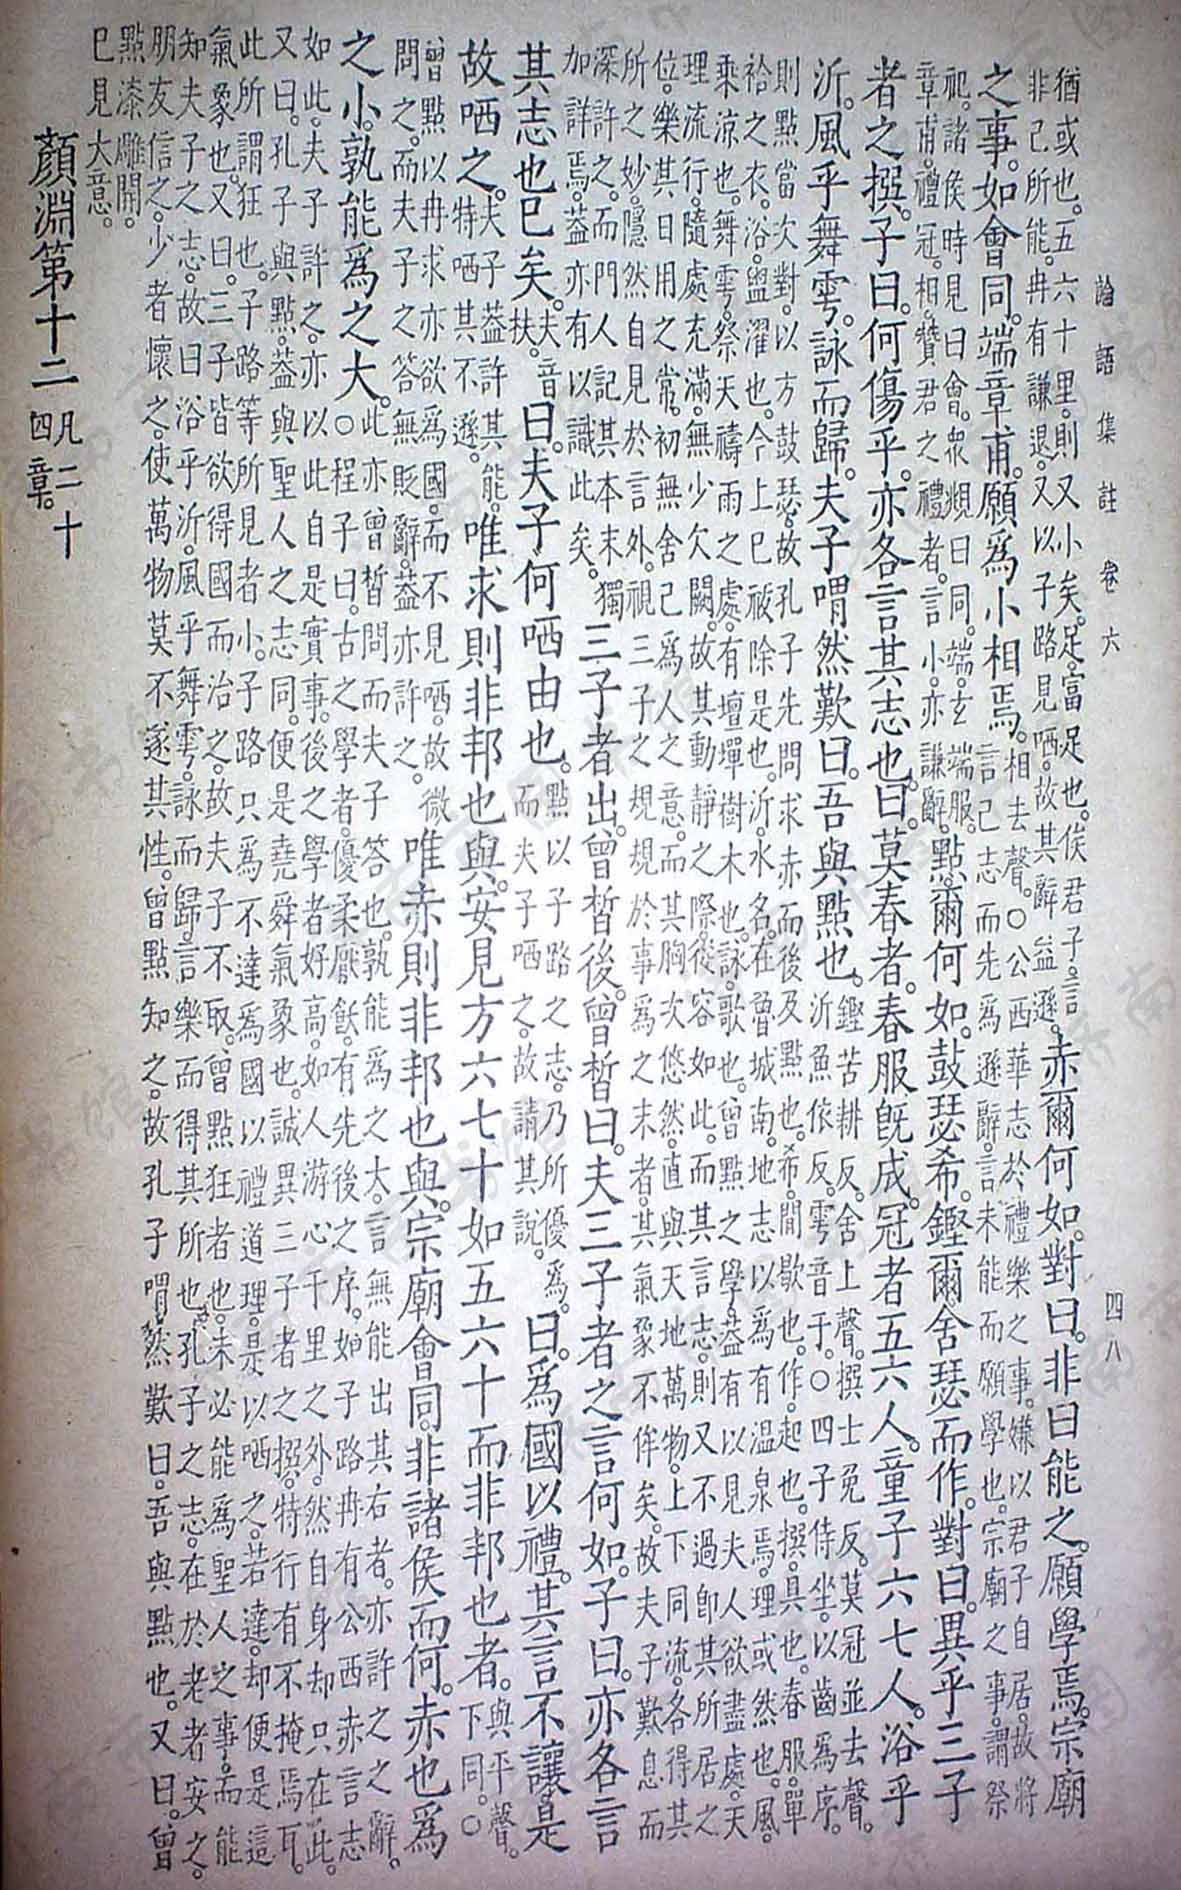 論語集註 卷六 四八
猶或也。五六十里。則又小矣。足。富足也。俟君子。言
非己所能。冉有謙退。又以子路見哂。故其辭益遜。
赤爾何如。對曰。非曰能之。願學焉。宗廟
之事。如會同。端章甫。願爲小相焉。
相去聲。○公西華志於禮樂之事。嫌以君子自居。故將
言己志而先爲遜辭。言未能而願學也。宗廟之事。謂祭
祀。諸侯時見曰會。衆覜曰同。端。玄端服。
章甫。禮冠。相。贊君之禮者。言小。亦謙辭。
點。爾何如。鼓瑟希。鏗爾。舍瑟而作。對曰。異乎三子
者之撰。子曰。何傷乎。亦各言其志也。曰。莫春者。春服旣成。冠者五六人。童子六七人。浴乎
沂。風乎舞雩。詠而歸。夫子喟然歎曰。吾與點也。
鏗苦耕反。舍上聲。撰士免反。莫冠並去聲。
沂魚依反。雩音于。○四子侍坐。以齒爲序。
則點當次對。以方鼓瑟。故孔子先問求赤而後及點也。希。間歇也。作。起也。撰。具也。春服。單
袷之衣。浴。盥濯也。今上巳祓除是也。沂。水名。在魯城南。地志以爲有温泉焉。理或然也。風。
乘涼也。舞雩。祭天禱雨之處。有壇墠樹木也。詠。歌也。曾點之學。葢有以見夫人欲盡處。天
理流行。隨處充滿。無少欠闕。故其動靜之際。從容如此。而其言志。則又不過卽其所居之
位。樂其日用之常。初無舍己爲人之意。而其胸次悠然。直與天地萬物。上下同流。各得其
所之妙。隱然自見於言外。視三子之規規於事爲之末者。其氣象不侔矣。故夫子歎息而
深許之。而門人記其本末獨
加詳焉。葢亦有以識此矣。
三子者出。曾晳後。曾晳曰。夫三子者之言何如。子曰。亦各言
其志也已矣。
夫音
扶。
曰。夫子何哂由也。
點以子路之志。乃所優爲。
而夫子哂之。故請其說。
曰。爲國以禮。其言不讓。是
故哂之。
夫子葢許其能。
特哂其不遜。
唯求則非邦也與。安見方六七十如五六十而非邦也者。
與平聲。
下同。○
曾點以冉求亦欲爲國。而不見哂。故微
問之。而夫子之答無貶辭。葢亦許之。
唯赤則非邦也與。宗廟會同。非諸侯而何。赤也爲
之小。孰能爲之大。
此亦曾晳問而夫子答也。孰能爲之大。言無能出其右者。亦許之之辭。
○程子曰。古之學者。優柔厭飫。有先後之序。如子路冉有公西赤言志
如此。夫子許之。亦以此自是實事。後之學者好高。如人游心千里之外。然自身却只在此。
又曰。孔子與點。葢與聖人之志同。便是堯舜氣象也。誠異三子者之撰。特行有不掩焉耳。
此所謂狂也。子路等所見者小。子路只爲不達爲國以禮道理。是以哂之。若達。却便是這
氣象也。又曰。三子皆欲得國而治之。故夫子不取。曾點狂者也。未必能爲聖人之事。而能
知夫子之志。故曰浴乎沂。風乎舞雩。詠而歸。言樂而得其所也。孔子之志。在於老者安之。
朋友信之。少者懷之。使萬物莫不遂其性。曾點知之。故孔子喟然歎曰。吾與點也。又曰。曾
點漆雕開。
已見大意。
顏淵第十二
凡二十
四章。